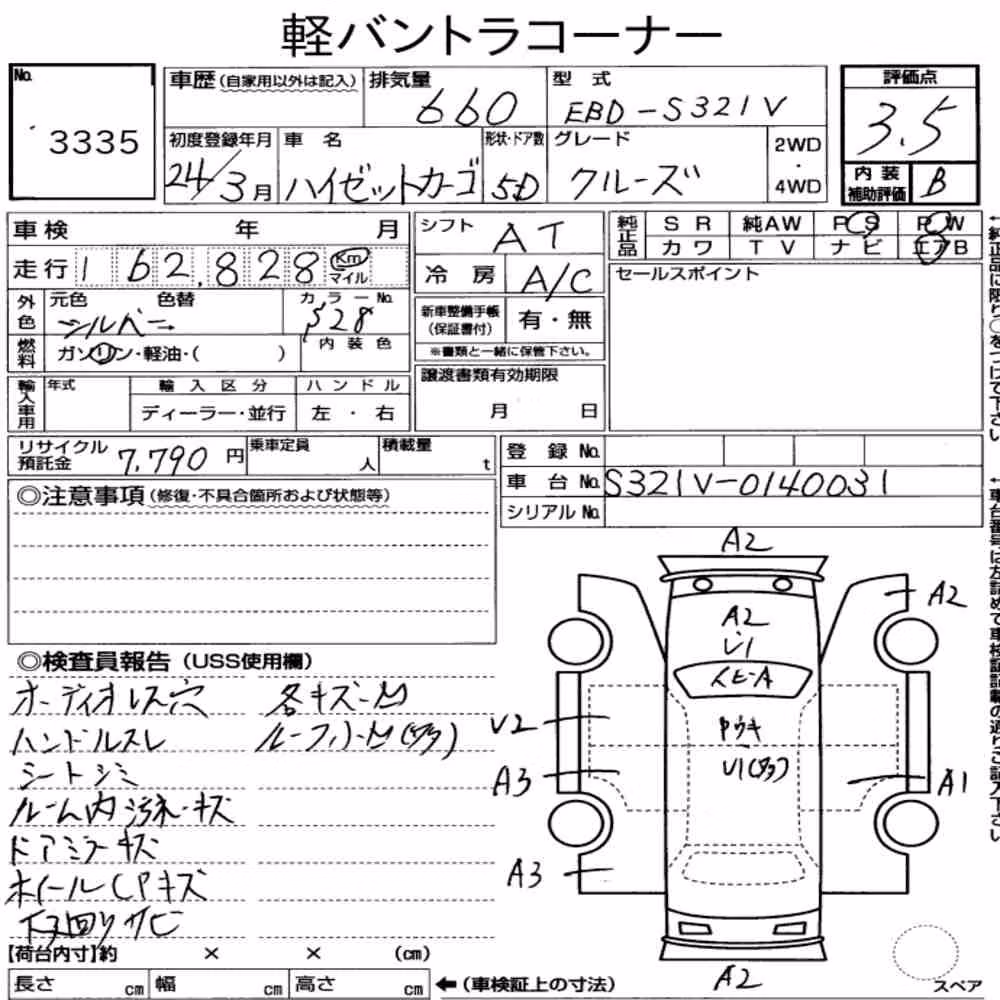 軽バントラコーナー
No. 3335
車歴(自家用以外は記入)
排気量 660
型式 EBD-S321V
評価点 3.5
初度登録年月 24/3月
車名 ハイゼットカーゴ
形状・ドア数 5D
グレード クルーズ
2WD・4WD
内装補助評価 B
車検 年 月
走行 162,828 Km マイル
シフト AT
冷房 A/C
純正品 SR 純AW PS PW
カワ TV ナビ エアB
セールスポイント
外色 元色 シルバー 色替
カラーNo. S28
新車整備手帳(保証書付) 有・無
※書類と一緒に保管下さい。
燃料 ガソリン・軽油・( )
内装色
輸入車用 年式 輸入区分 ハンドル
ディーラー・並行 左・右
譲渡書類有効期限
月 日
リサイクル預託金 7,790円
乗車定員 人
積載量 t
登録No.
車台No. S321V-0140031
シリアルNo.
◎注意事項(修復・不具合箇所および状態等)
◎検査員報告(USS使用欄)
オーディオレス穴 各キズ-凹
ハンドルスレ
シートシミ
ルーム内汚れ・キズ
ドアミラーキズ
ホイールCPキズ
下回りサビ
A2
A2
A2
U1
U2
A3
A1
A3
A2
スペア
【荷台内寸】約 × × (cm)
長さ cm 幅 cm 高さ cm
←(車検証上の寸法)